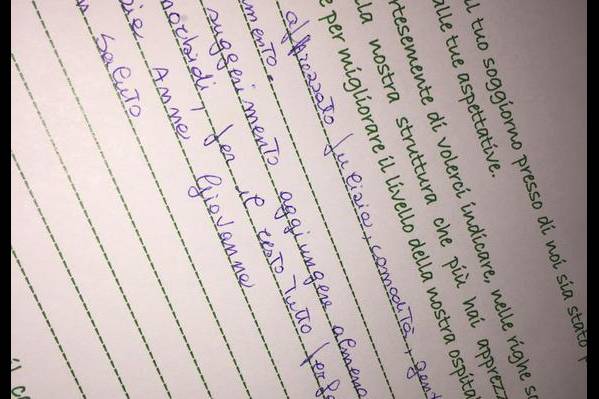 l tuo soggiorno presso di noi sia stato p
alle tue aspettative.
rtesemente di volerci indicare, nelle righe so
la nostra struttura che più hai apprezz
e per migliorare il livello della nostra ospital
apprezzato pulizia, comodità, gent
mento.
suggerimento aggiungere almeno
morbidi, per il resto tutto perfe
zie Anna Giovanna
Saluto
il c